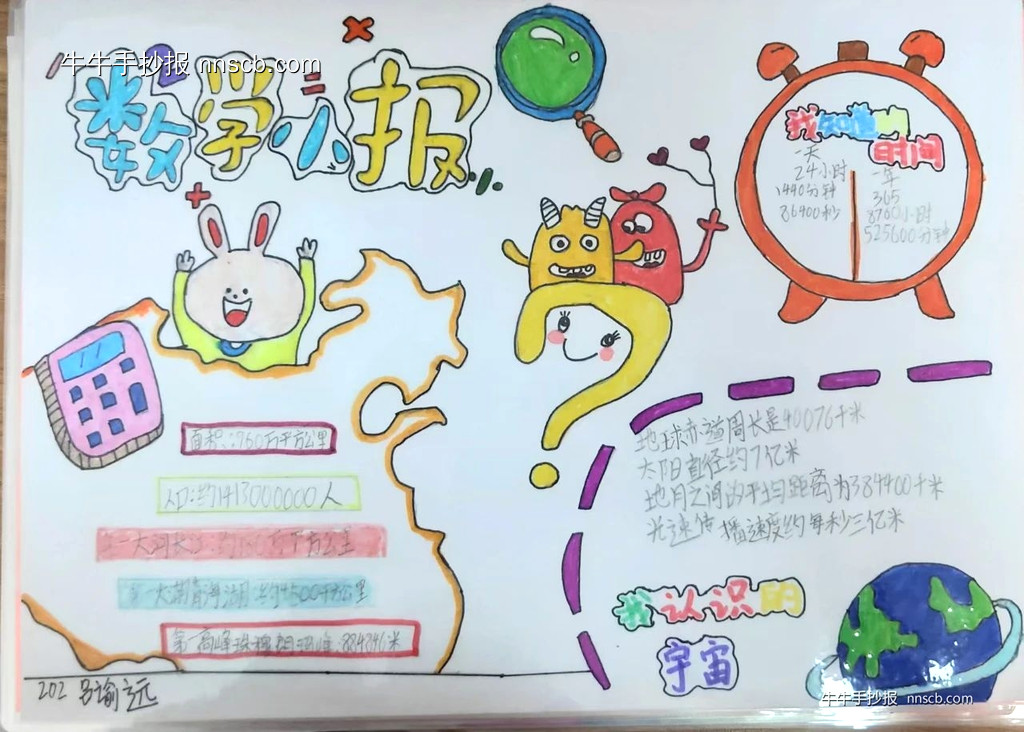 牛牛手抄报 nnscb.com
数学小报
我知道的
时间
一天
24小时
1440分钟
86400秒
一年
365
8760小时
525600分钟
面积:960万平方公里
人口:约1413000000人
第一大河长江:约
第一大湖青海湖:约4500平方公里
第一高峰珠穆朗玛峰:8848.86米
地球赤道周长是40076千米
太阳直径约7亿米
地月之间的平均距离为384400千米
光速传播速度约每秒三亿米
我认识的
宇宙
202
瑜远
牛牛手抄报 nnscb.com